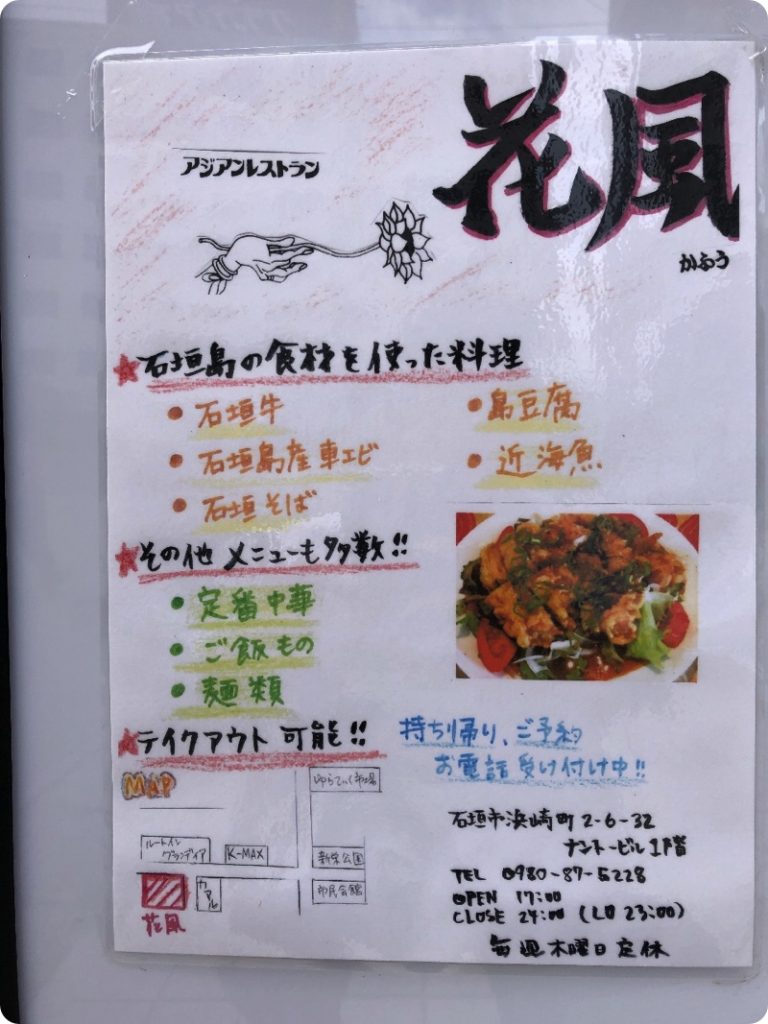 アジアンレストラン
花風
かふう
★石垣島の食材を使った料理
・石垣牛
・島豆腐
・石垣島産車エビ
・近海魚
・石垣そば
★その他 メニューも多数!!
・定番中華
・ご飯もの
・麺類
★テイクアウト可能!!
持ち帰り、ご予約
お電話受け付け中!!
MAP
ゆらてぃく市場
ルートイン
グランディア
K-MAX
新栄公園
市民会館
花風
石垣市浜崎町2-6-32
ナントービル1階
TEL 0980-87-5228
OPEN 17:00
CLOSE 24:00 (LO 23:00)
毎週木曜日定休